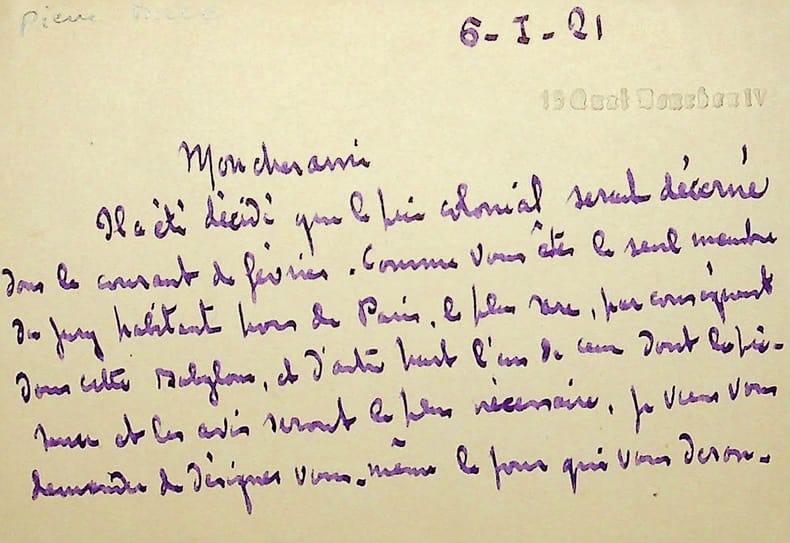 Pierre Mille
6-I-21
15 Quai Bourbon IV
Mon cher ami
Il a été décidé que le prix colonial serait décerné
dans le courant de février. Comme vous êtes le seul membre
du jury habitant hors de Paris, le plus rare, par conséquent
dans cette Babylone, et d'autre part l'un de ceux dont la pré-
sence et les avis seront le plus nécessaire, je viens vous
demander de désigner vous-même le jour qui vous